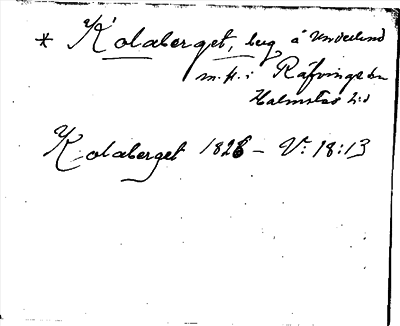 * Kolaberget, berg å Underlund
m. fl. i Räfvinge sn
Halmstad h:d
Kolaberget 1826 – V: 18:13